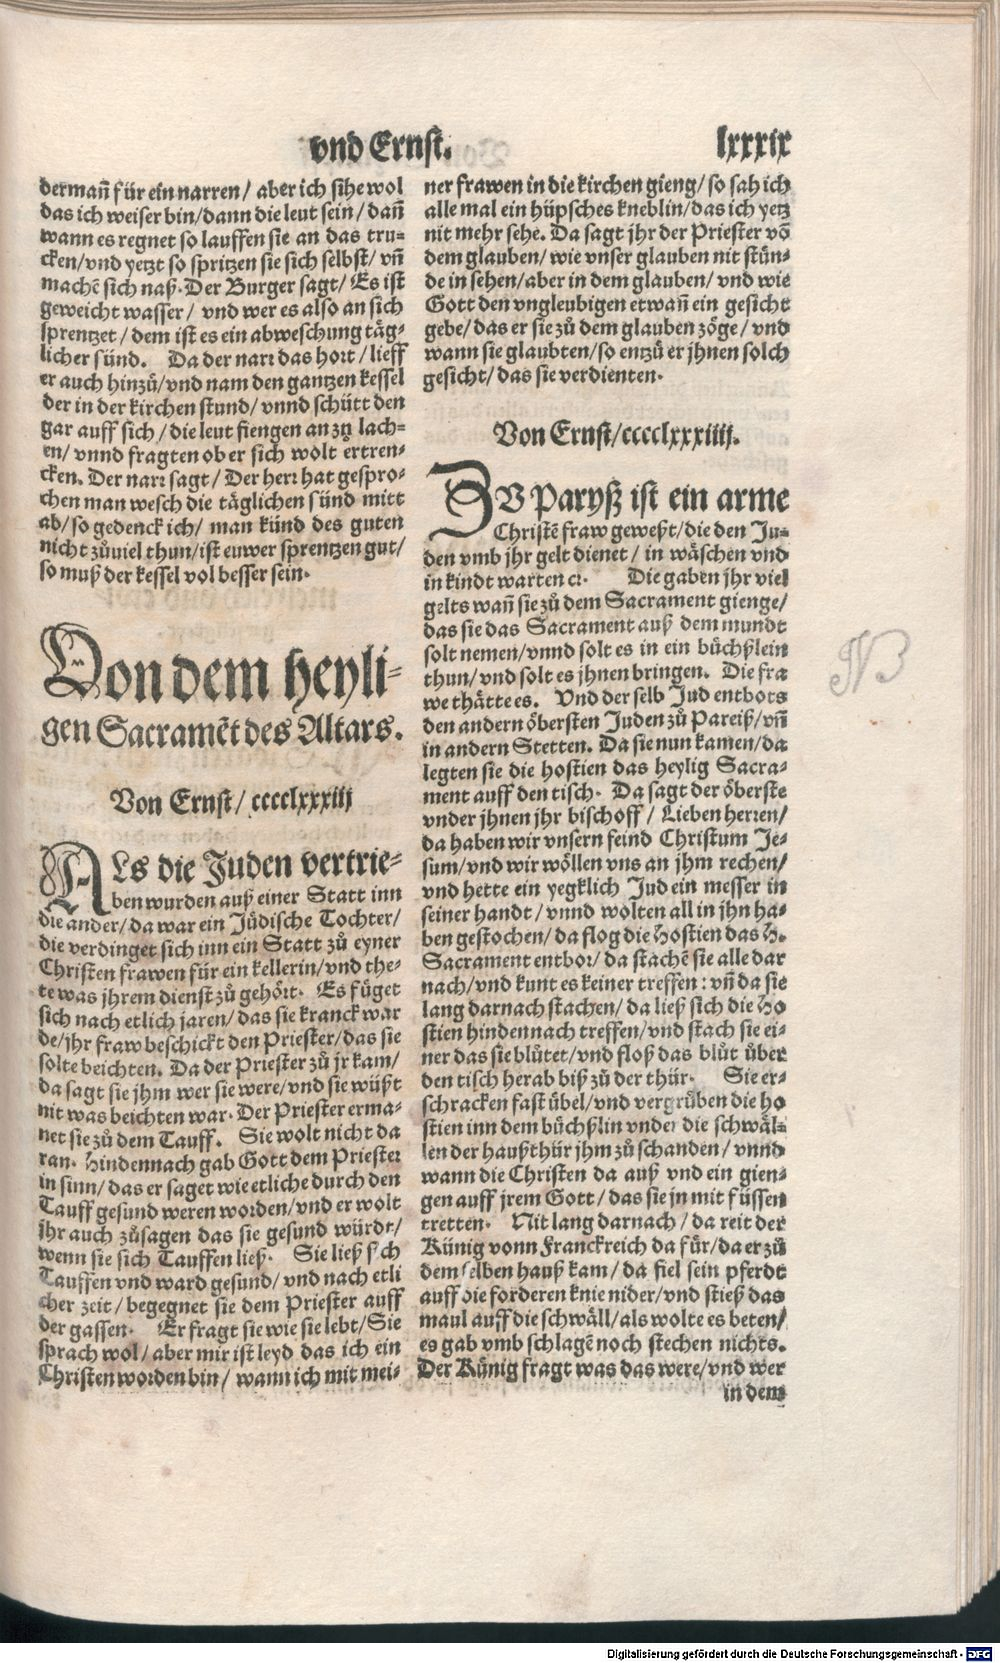 vnd Ernst. lxxxix
dermañ für ein narren/ aber ich sihe wol
das ich weiser bin/dann die leut sein/ dañ
wann es regnet so lauffen sie an das tru-
cken/vnd yetzt so spritzen sie sich selbst/ vñ
machē sich naß. Der Burger sagt/ Es ist
geweicht wasser/ vnd wer es also an sich
sprentzet/ dem ist es ein abweschung täg-
licher sünd. Da der narr das hort/ lieff
er auch hinzů/vnd nam den gantzen kessel
der in der kirchen stund/ vnnd schütt den
gar auff sich/ die leut fiengen an zů lach-
en/ vnnd fragten ob er sich wolt ertren-
cken. Der narr sagt/ Der herr hat gespro-
chen man wesch die täglichen sünd mitt
ab/ so gedenck ich/ man künd des guten
nicht zůuiel thun/ ist euwer sprentzen gut/
so muß der kessel vol besser sein.
Von dem heyli-
gen Sacramēt des Altars.
Von Ernst/ cccclxxxiij
ALs die Juden vertrie-
ben wurden auß einer Statt inn
die ander/ da war ein Jüdische Tochter/
die verdinget sich inn ein Statt zů eyner
Christen frawen für ein kellerin/vnd the-
te was jhrem dienst zů gehört. Es füget
sich nach etlich jaren/ das sie kranck war
de/jhr fraw beschickt den Priester/das sie
solte beichten. Da der Priester zů jr kam/
da sagt sie jhm wer sie were/vnd sie wüßt
nit was beichten war. Der Priester erma-
net sie zů dem Tauff. Sie wolt nicht da
ran. Hindennach gab Gott dem Priester
in sinn/ das er saget wie etliche durch den
Tauff gesund weren worden/vnd er wolt
jhr auch zůsagen das sie gesund würdt/
wenn sie sich Tauffen ließ. Sie ließ sich
Tauffen vnd ward gesund/ vnd nach etli
cher zeit/ begegnet sie dem Priester auff
der gassen. Er fragt sie wie sie lebt/ Sie
sprach wol/ aber mir ist leyd das ich ein
Christen worden bin/ wann ich mit mei-
ner frawen in die kirchen gieng/ so sah ich
alle mal ein hüpsches kneblin/das ich yetz
nit mehr sehe. Da sagt jhr der Priester vō
dem glauben/ wie vnser glauben nit stün-
de in sehen/ aber in dem glauben/ vnd wie
Gott den vngleubigen etwañ ein gesicht
gebe/ das er sie zů dem glauben zöge/ vnd
wann sie glaubten/so entzü er jhnen solch
gesicht/ das sie verdienten.
Von Ernst/cccclxxxiiij.
ZV Paryß ist ein arme
Christē fraw geweßt/die den Ju-
den vmb jhr gelt dienet/ in wäschen vnd
in kindt warten ꝛc. Die gaben jhr viel
gelts wañ sie zů dem Sacrament gienge/
das sie das Sacrament auß dem mundt
solt nemen/ vnnd solt es in ein büchßlein
thun/ vnd solt es jhnen bringen. Die fra
we thätte es. Vnd der selb Jud entbots
den andern öbersten Juden zů Pareiß/vñ
in andern Stetten. Da sie nun kamen/da
legten sie die hostien das heylig Sacra-
ment auff den tisch. Da sagt der öberste
vnder jhnen jhr bischoff/ Lieben herren/
da haben wir vnsern feind Christum Je-
sum/vnd wir wöllen vns an jhm rechen/
vnd hette ein yegklich Jud ein messer in
seiner handt/ vnnd wolten all in jhn ha-
ben gestochen/ da flog die Hostien das H.
Sacrament entbor/ da stachē sie alle dar
nach/vnd kunt es keiner treffen: vñ da sie
lang darnach stachen/ da ließ sich die Ho
stien hindennach treffen/vnd stach sie ei-
ner das sie blůtet/vnd floß das blůt über
den tisch herab biß zů der thür. Sie er-
schracken fast übel/vnd vergrůben die ho
stien inn dem büchßlin vnder die schwäl-
len der haußthür jhm zů schanden/ vnnd
wann die Christen da auß vnd ein gien-
gen auff jrem Gott/ das sie jn mit füssen
tretten. Nit lang darnach/ da reit der
Künig vonn Franckreich da für/da er zů
dem selben hauß kam/ da fiel sein pferdt
auff die forderen knie nider/ vnd stieß das
maul auff die schwäll/als wolte es beten/
es gab vmb schlagē noch stechen nichts.
Der Künig fragt was das were/vnd wer
in dem
NB
Digitalisierung gefördert durch die Deutsche Forschungsgemeinschaft - DFG